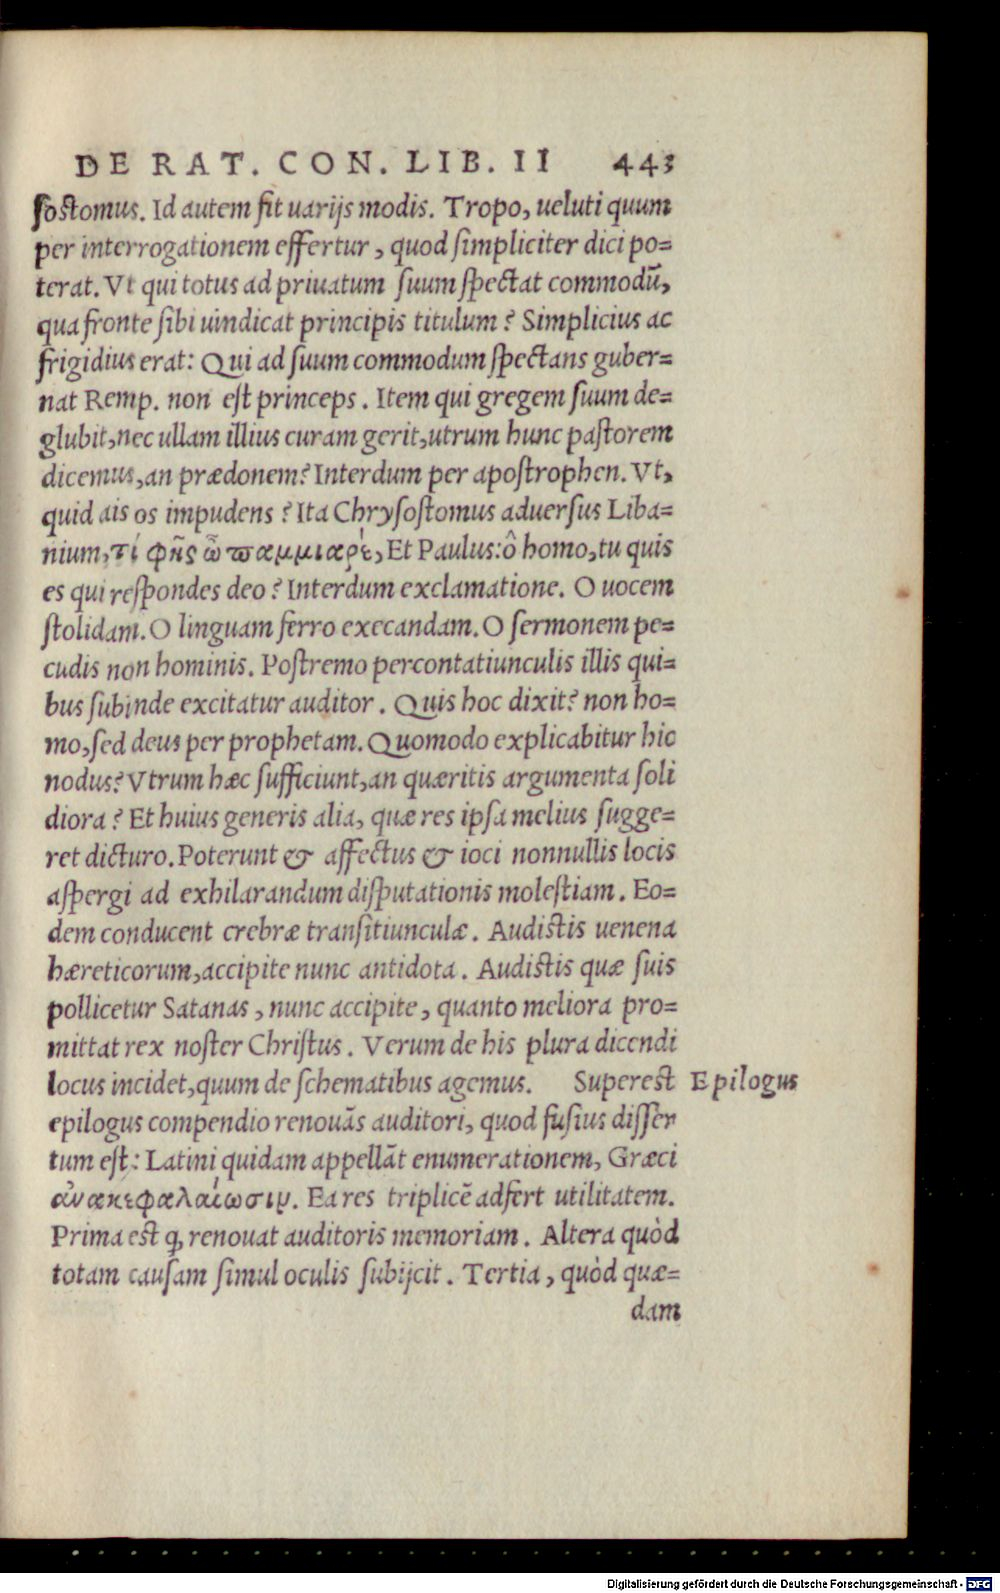 DE RAT. CON. LIB. II 443
sostomus. Id autem fit uarijs modis. Tropo, ueluti quum
per interrogationem effertur, quod simpliciter dici po=
terat. Vt qui totus ad priuatum suum spectat commodū,
qua fronte sibi uindicat principis titulum? Simplicius ac
frigidius erat: Qui ad suum commodum spectans guber=
nat Remp. non est princeps. Item qui gregem suum de=
glubit, nec ullam illius curam gerit, utrum hunc pastorem
dicemus, an prædonem? Interdum per apostrophen. Vt,
quid ais os impudens? Ita Chrysostomus aduersus Liba=
nium, τί φῂς ὦ παμμιαρέ, Et Paulus: ô homo, tu quis
es qui respondes deo? Interdum exclamatione. O uocem
stolidam. O linguam ferro execandam. O sermonem pe=
cudis non hominis. Postremo percontatiunculis illis qui=
bus subinde excitatur auditor. Quis hoc dixit? non ho=
mo, sed deus per prophetam. Quomodo explicabitur hic
nodus? Vtrum hæc sufficiunt, an quæritis argumenta soli
diora? Et huius generis alia, quæ res ipsa melius sugge=
ret dicturo. Poterunt & affectus & ioci nonnullis locis
aspergi ad exhilarandum disputationis molestiam. Eo=
dem conducent crebræ transitiunculæ. Audistis uenena
hæreticorum, accipite nunc antidota. Audistis quæ suis
pollicetur Satanas, nunc accipite, quanto meliora pro=
mittat rex noster Christus. Verum de his plura dicendi
locus incidet, quum de schematibus agemus. Superest Epilogus
epilogus compendio renouās auditori, quod fusius disser
tum est: Latini quidam appellāt enumerationem, Græci
ἀνακεφαλαίωσιν. Ea res triplicē adfert utilitatem.
Prima est ꝙ renouat auditoris memoriam. Altera quòd
totam causam simul oculis subijcit. Tertia, quòd quæ=
dam
Digitalisierung gefördert durch die Deutsche Forschungsgemeinschaft - DFG